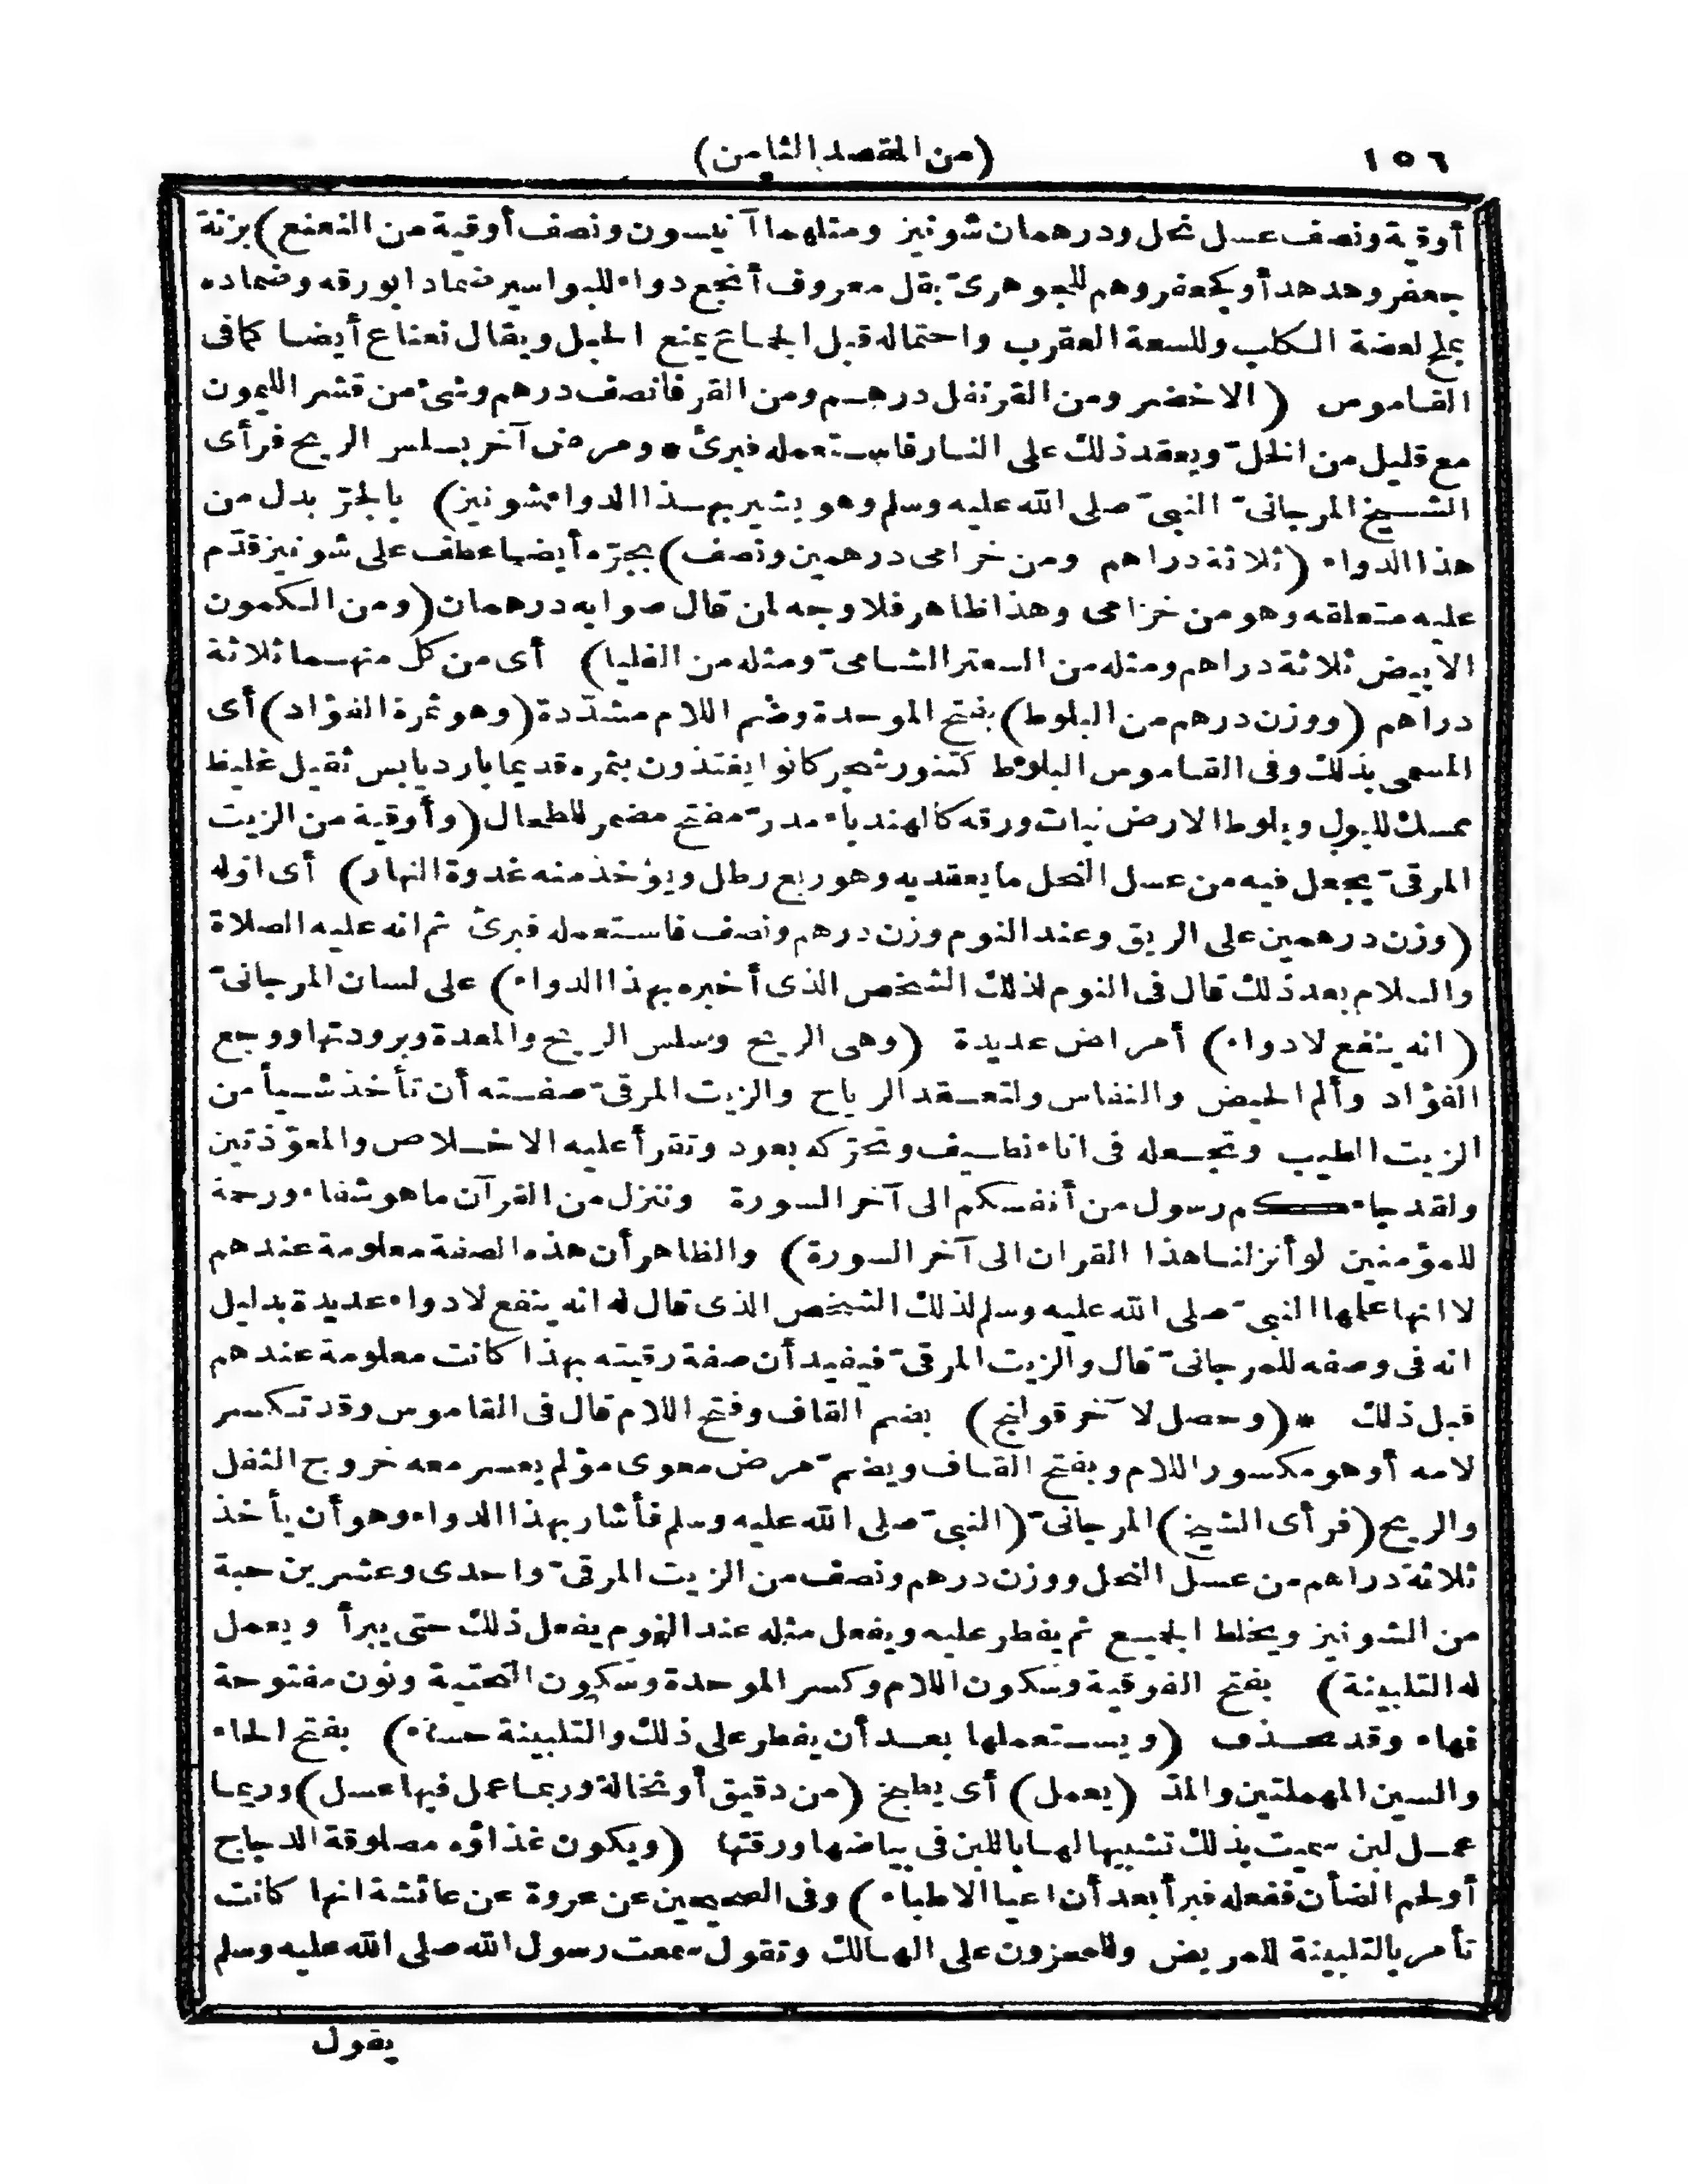 ١٥٦
(من المقصد الثامن)
أوقية ونصف عسل نحل ودرهمان شونيز ومثلهما آنيسون ونصف أوقية من النعنع) بزنة
جعفر وهدهد أو كجعفر وهم للجوهرىّ بقل معروف أنجع دواء للبواسير ضمادا بورقه وضماده
بملح لعضة الكلب وللسعة العقرب واحتماله قبل الجماع يمنع الحبل ويقال نعناع أيضا كما فى
القاموس (الاخضر ومن القرنفل درهم ومن القرفا نصف درهم وشئ من قشر الليمون
مع قليل من الخلّ ويعقد ذلك على النار فاستعمله فبرئ * ومرض آخر بسلس الريح فرأى
الشيخ المرجانىّ النبىّ صلى الله عليه وسلم وهو يشير بهذا الدواء شونيز) بالجرّ بدل من
هذا الدواء (ثلاثة دراهم ومن خزامى درهمين ونصف) بجرّه أيضا عطف على شونيز قدّم
عليه متعلقه وهو من خزامى وهذا ظاهر فلا وجه لمن قال صوابه درهمان (ومن الكمون
الأبيض ثلاثة دراهم ومثله من السعتر الشامىّ ومثله من الفليا) أى من كل منهما ثلاثة
دراهم (ووزن درهم من البلوط) بفتح الموحدة وضم اللام مشدّدة (وهو ثمرة الفؤاد) أى
المسمى بذلك وفى القاموس البلوط كتنور شجر كانوا يغتذون بثمره قديما بارد يابس ثقيل غليظ
ممسك للبول وبلوط الارض نبات ورقه كالهندباء مدرّ مفتح مضمر للطحال (وأوقية من الزيت
المرقىّ يجعل فيه من عسل النحل ما يعقد به وهو ربع رطل ويؤخذ منه غدوة النهار) أى اوله
(وزن درهمين على الريق وعند النوم وزن درهم ونصف فاستعمله فبرئ ثم انه عليه الصلاة
والسلام بعد ذلك قال فى النوم لذلك الشخص الذى أخبره بهذا الدواء) على لسان المرجانىّ
(انه ينفع لادواء) أمراض عديدة (وهى الريح وسلس الريح والمعدة وبرودتها ووجع
الفؤاد وألم الحيض والنفاس ولتعقد الرياح والزيت المرقىّ صفته أن تأخذ شيأ من
الزيت الطيب وتجعله فى اناء نظيف وتحرّكه بعود وتقرأ عليه الاخلاص والمعوّذتين
ولقد جاءكم رسول من أنفسكم الى آخر السورة وننزل من القرآن ما هو شفاء ورحمة
للمؤمنين لو أنزلنا هذا القران الى آخر السورة) والظاهر أن هذه الصفة معلومة عندهم
لا انها علمها النبىّ صلى الله عليه وسلم لذلك الشخص الذى قال له انه ينفع لادواء عديدة بدليل
انه فى وصفه للمرجانىّ قال والزيت المرقىّ فيفيد أن صفة رقيته بهذا كانت معلومة عندهم
قبل ذلك * (وحصل لآخر قولنج) بضم القاف وفتح اللام قال فى القاموس وقد تكسر
لامه أو هو مكسور اللام وبفتح القاف ويضمّ مرض معوى مؤلم يعسر معه خروج الثفل
والريح (فرأى الشيخ) المرجانىّ (النبىّ صلى الله عليه وسلم فأشار بهذا الدواء وهو أن يأخذ
ثلاثة دراهم من عسل النحل ووزن درهم ونصف من الزيت المرقىّ واحدى وعشرين حبة
من الشونيز ويخلط الجميع ثم يفطر عليه ويفعل مثله عند النوم يفعل ذلك حتى يبرأ ويعمل
له التلبينة) بفتح الفوقية وسكون اللام وكسر الموحدة وسكون التحتية ونون مفتوحة
فهاء وقد تحذف (ويستعملها بعد أن يفطر على ذلك والتلبينة حساء) بفتح الحاء
والسين المهملتين والمدّ (يعمل) أى يطبخ (من دقيق أو نخالة وربما عمل فيها عسل) وربما
عمل لبن سميت بذلك تشبيها لها باللبن فى بياضها ورقتها (ويكون غذاؤه مصلوقة الدجاج
أو لحم الضأن ففعله فبرأ بعد أن اعيا الاطباء) وفى الصحيحين عن عروة عن عائشة انها كانت
تأمر بالتلبينة للمريض وللمحزون على الهالك وتقول سمعت رسول الله صلى الله عليه وسلم
يقول